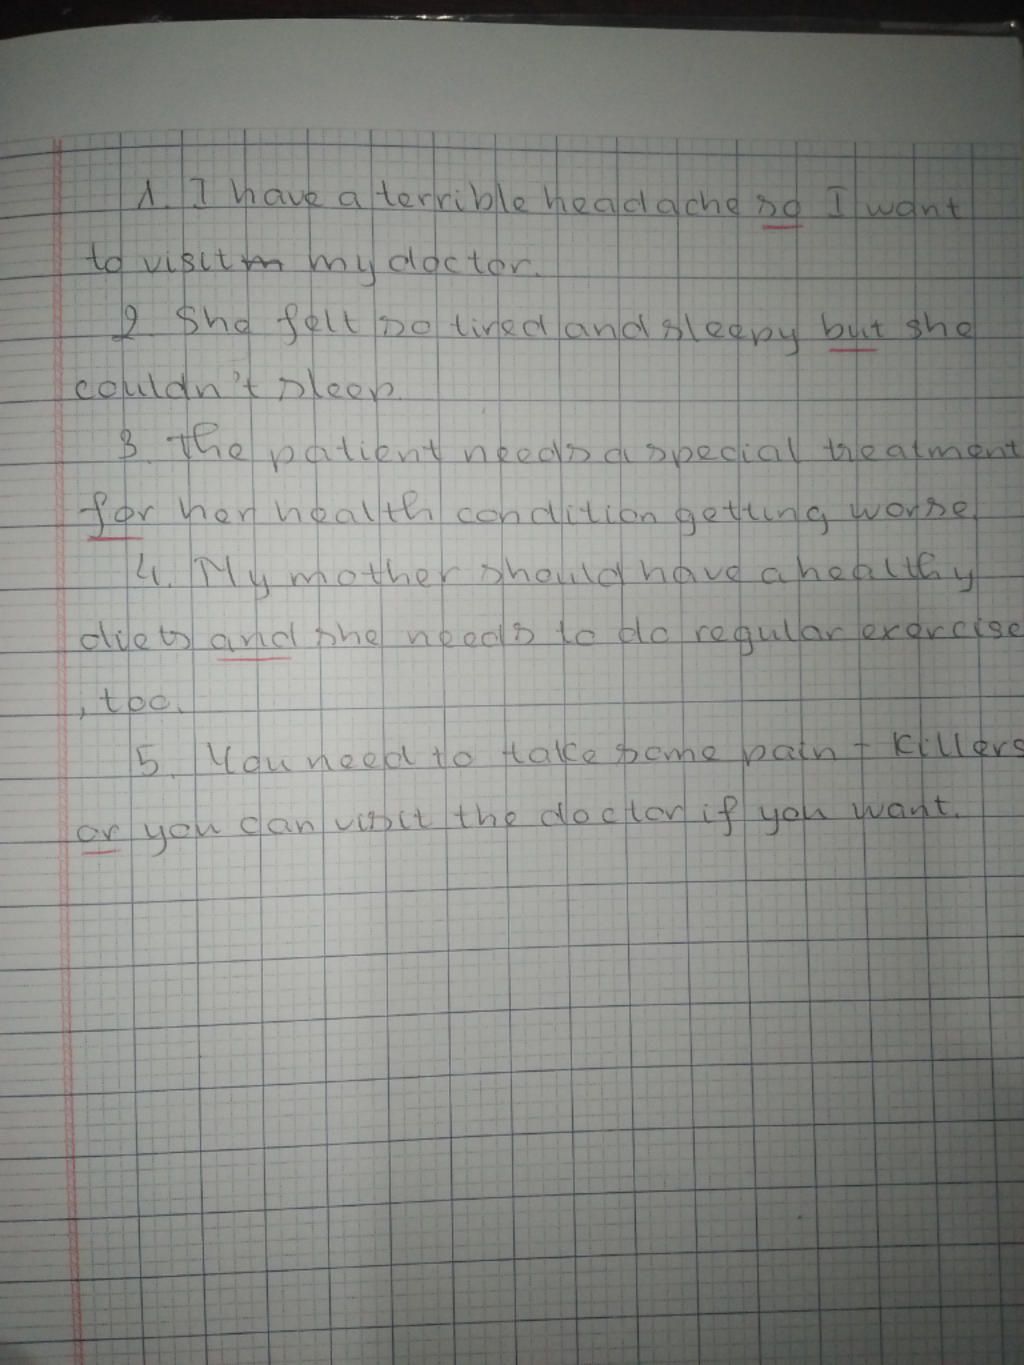 1. I have a terrible headache so I want
to visit m my doctor.
2. She felt so tired and sleepy but she
couldn't sleep.
3. the patient needs a special treatment
for her health condition getting worse
4. My mother should have a healthy
diets and she needs to do regular exercise
, too.
5. You need to take some pain-killers
or you can visit the doctor if you want.